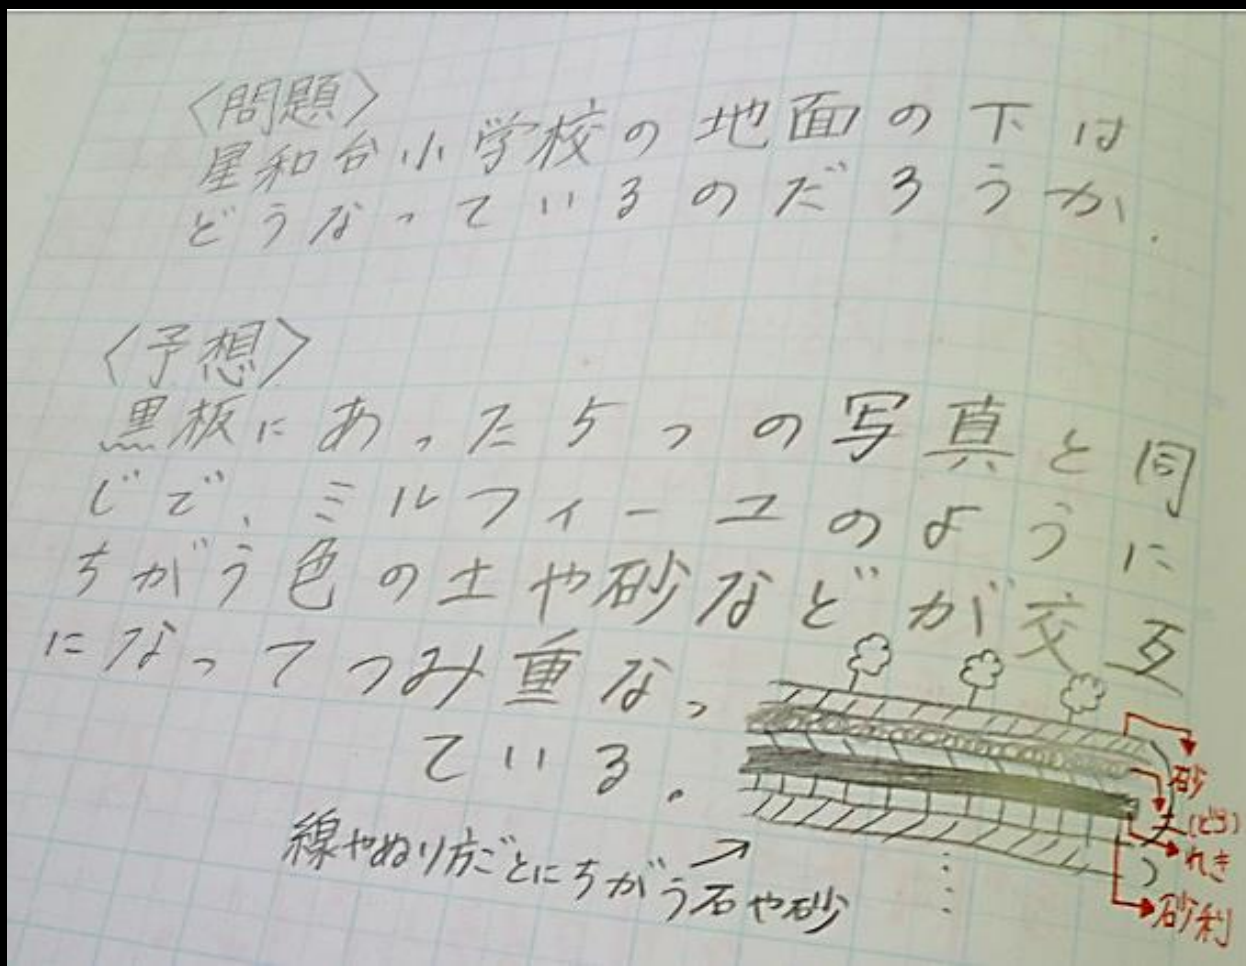 〈問題〉
星和台小学校の地面の下は
どうなっているのだろうか.
〈予想〉
黒板にあった5つの写真と同
じで、ミルフィーユのように
ちがう色の土や砂などが交互
になってつみ重なっ
ている。
線やぬり方ごとにちがう石や砂
砂
土
(どろ)
れき
砂利